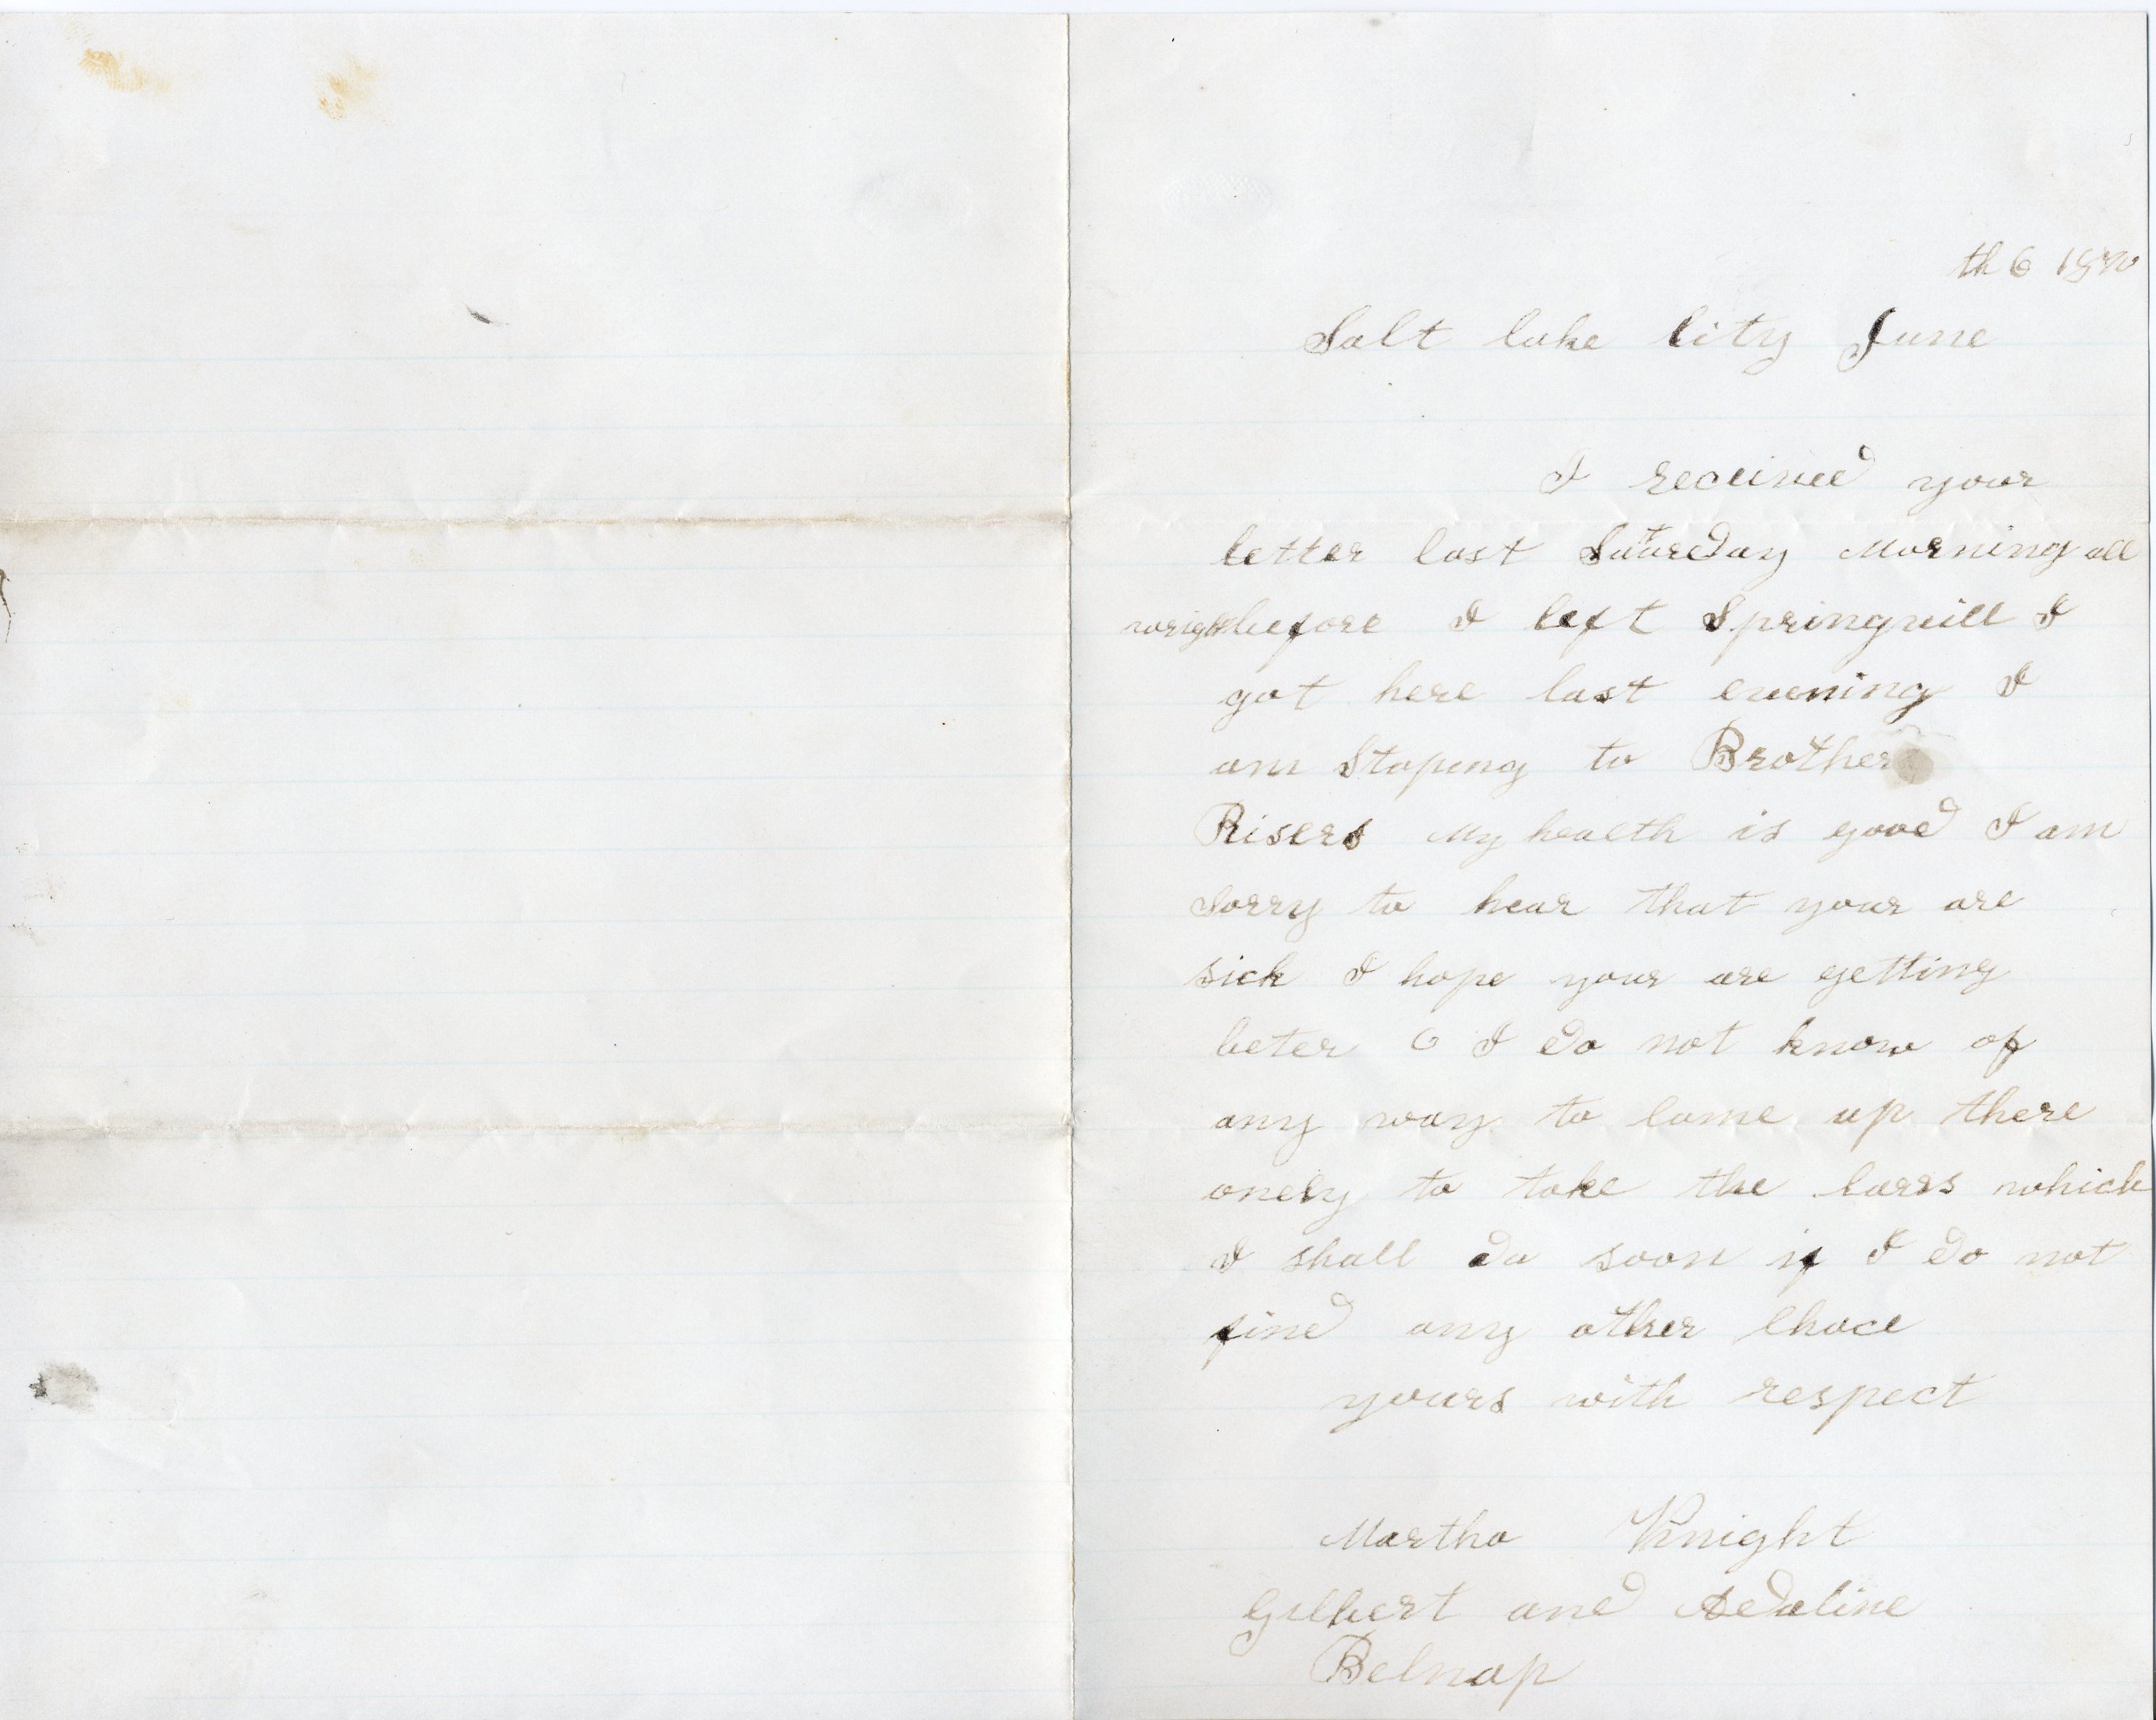 th 6 1870
Salt lake City June
I received your
letter last Saturday Morning all
wright before I left Springvill I
got here last evening I
am Stoping to Brother
Risers My health is good I am
Sorry to hear that your are
sick I hope your are getting
beter O I do not know of
any way to Come up there
onely to take the Carrs which
I shall do soon if I do not
find any other Choce
yours with respect
Martha Knight
Gilbert and Adaline
Belnap